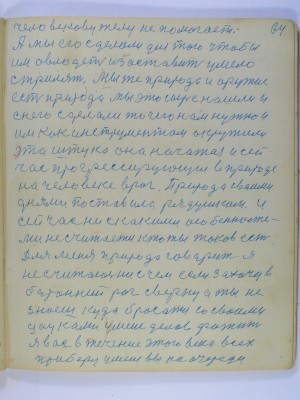 человекову телу не помогает. 64
А мы его сделали для того чтобы
им овладеть и заставить умело
стрилять. Мы же природа и оружие
есть природа мы это сырье нашли и
с него сделали то чего нам нужно и
им как инструментом окружили
эта штука она начата и сей
час прогрессирующи в природе
на человека враг. Природа своими
днями поставила рядушком. И
сейчас ни с какими особенностя-
ми не считается кто ты таков есть.
Для меня природа говорит я
не считаюсь ни с чем если захочу в
бараний рог сверну а ты не
знаеш куда бросать со своими
науками умением дрожать
я вас в течение этого века всех
приберу умеш вы на очереди